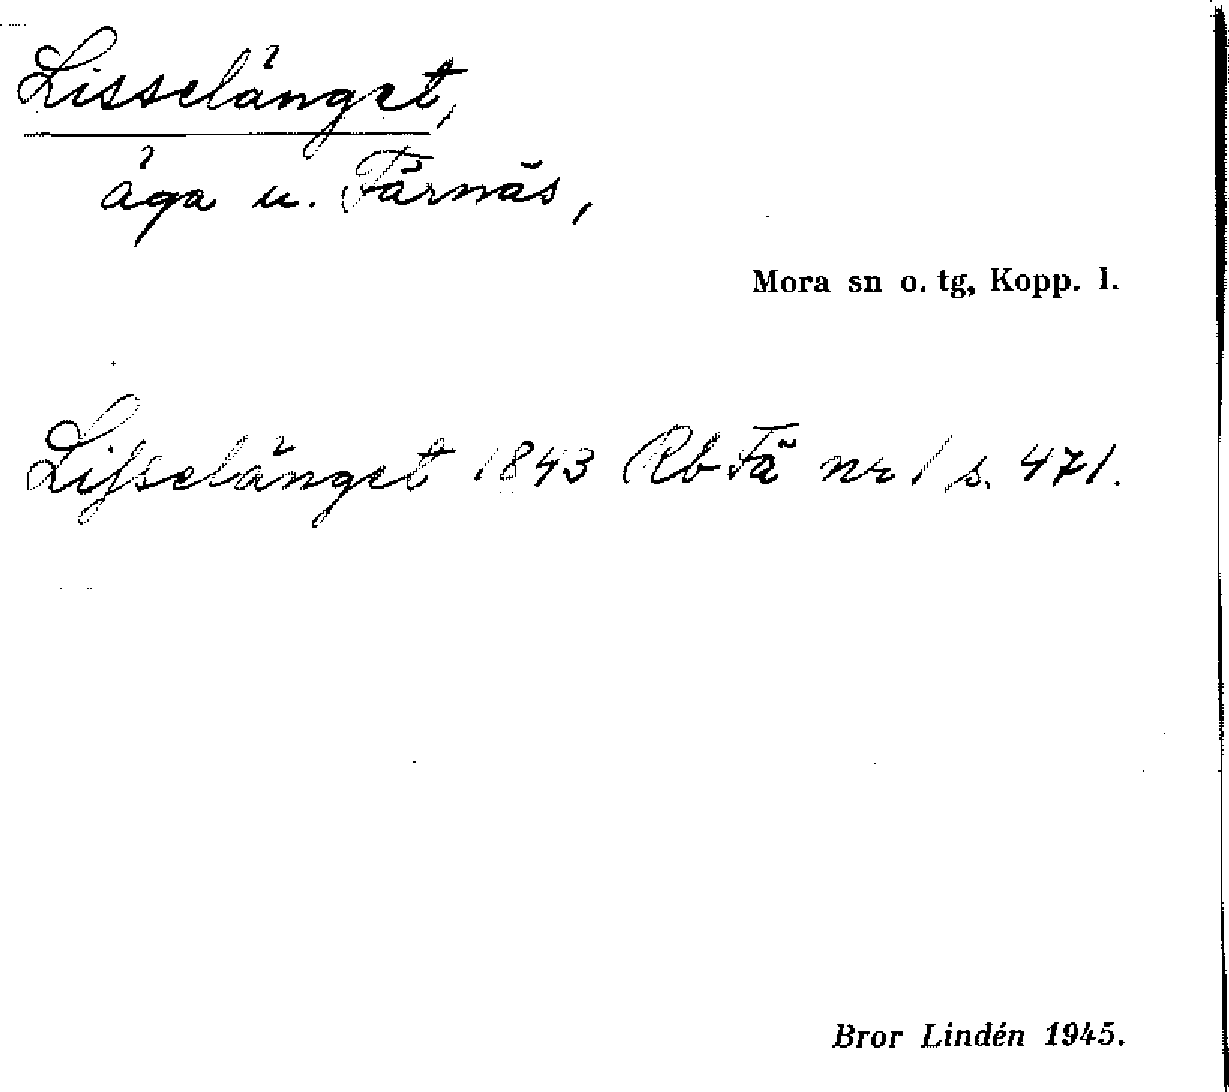 Lisselänget,
äga u. Färnäs,
Mora sn o. tg, Kopp. l.
Lifselänget 1843 Rb Fä nr 1 s. 471.
Bror Lindén 1945.